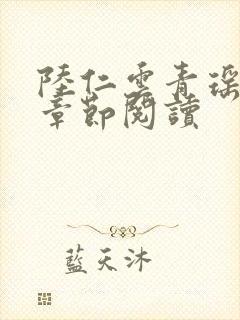 陸仁雲青瑶
章節閱讀
藍天沐